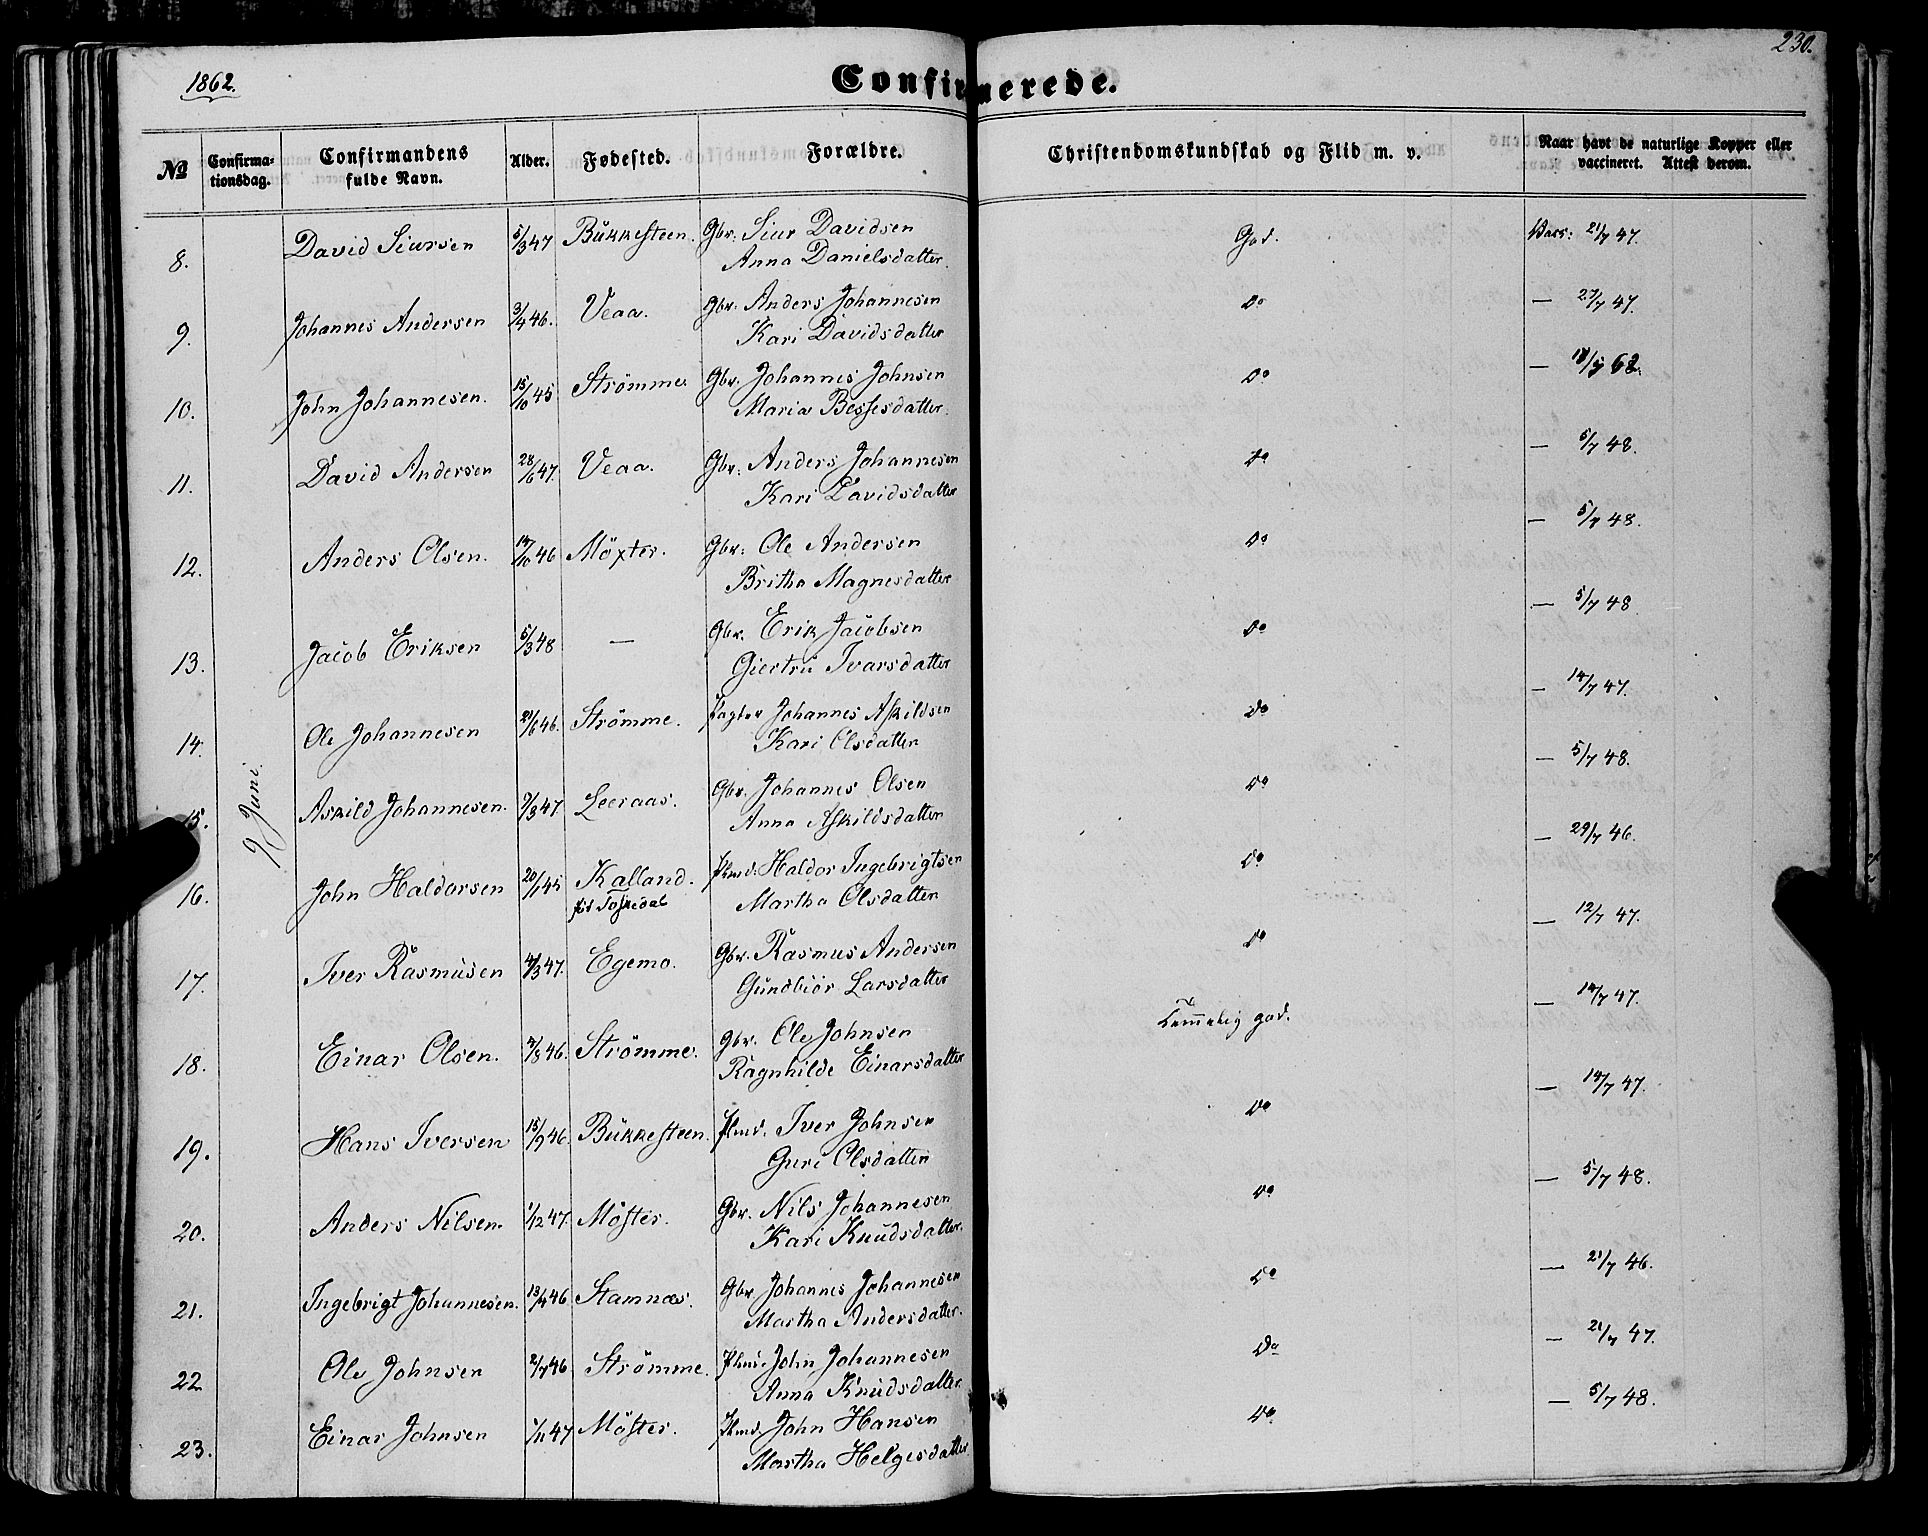 1862.
230.
Confirmerede.
No
Confirma-
tionsdag.
Confirmandens
fulde Navn.
Alder.
Fødested.
Forældre.
Christendomskundskab og Flid m. v.
Naar havt de naturlige Kopper eller
vaccineret. Attest derom.
9 Juni.
8. David Siursen 5/3 47 Bukkesteen. Gbr: Siur Davidsen God. Vacc: 21/7 47.
Anna Danielsdatter.
9. Johannes Andersen 3/4 46. Veaa. Gbr: Anders Johannesen Do — 27/7 47.
Kari Davidsdatter
10. John Johannesen. 15/10 45 Strömme Gbr. Johannes Johnsen Do — 62.
Maria Bessesdatter.
11. David Andersen 28/6 47. Veaa. Gbr: Anders Johannesen Do — 5/7 48.
Kari Davidsdatter
12. Anders Olsen. 14/10 46 Möxter. Gbr: Ole Andersen Do — 5/7 48.
Britha Magnesdatter
13. Jacob Eriksen 5/3 48 — Gbr. Erik Jacobsen Do — 5/7 48
Giertru Ivarsdatter
14. Ole Johannesen 21/6 46. Strömme. Johannes Askildsen Do — 14/7 47.
Kari Olsdatter
15. Askild Johannesen. 9/3 47 Leeraas. Gbr. Johannes Olsen Do — 5/7 48.
Anna Askildsdatter
16. John Haldorsen 20/1 45 Kalland. Plmd: Haldor Ingebrigtsen Do — 29/7 46.
Martha Olsdatter
17. Iver Rasmusen 4/3 47. Egemo. Gbr. Rasmus Andersen Do — 12/7 47.
Gundbiör Larsdatter
18. Einar Olsen. 4/8 46. Strömme. Gbr. Ole Johnsen Temmelig god. — 14/7 47.
Ragnhilde Einarsdatter
19. Hans Iversen 15/9 46. Bukkesteen. Plmd. Iver Johnsen Do — 14/7 47.
Guri Olsdatter
20. Anders Nilsen. 1/12 47. Möster. Gbr. Nils Johannesen Do — 5/7 48.
Kari Knudsdatter.
21. Ingebrigt Johannesen. 13/4 46 Stamnæs. Gbr. Johannes Johannesen Do — 21/7 46.
Martha Andersdatter.
22 Ole Johnsen 2/7 46 Strömme. Plmd. John Johannesen Do — 21/7 47.
Anna Knudsdatter.
23. Einar Johnsen 1/11 47 Möster. Plmd John Hansen Do — 5/7 48.
Martha Helgesdatter